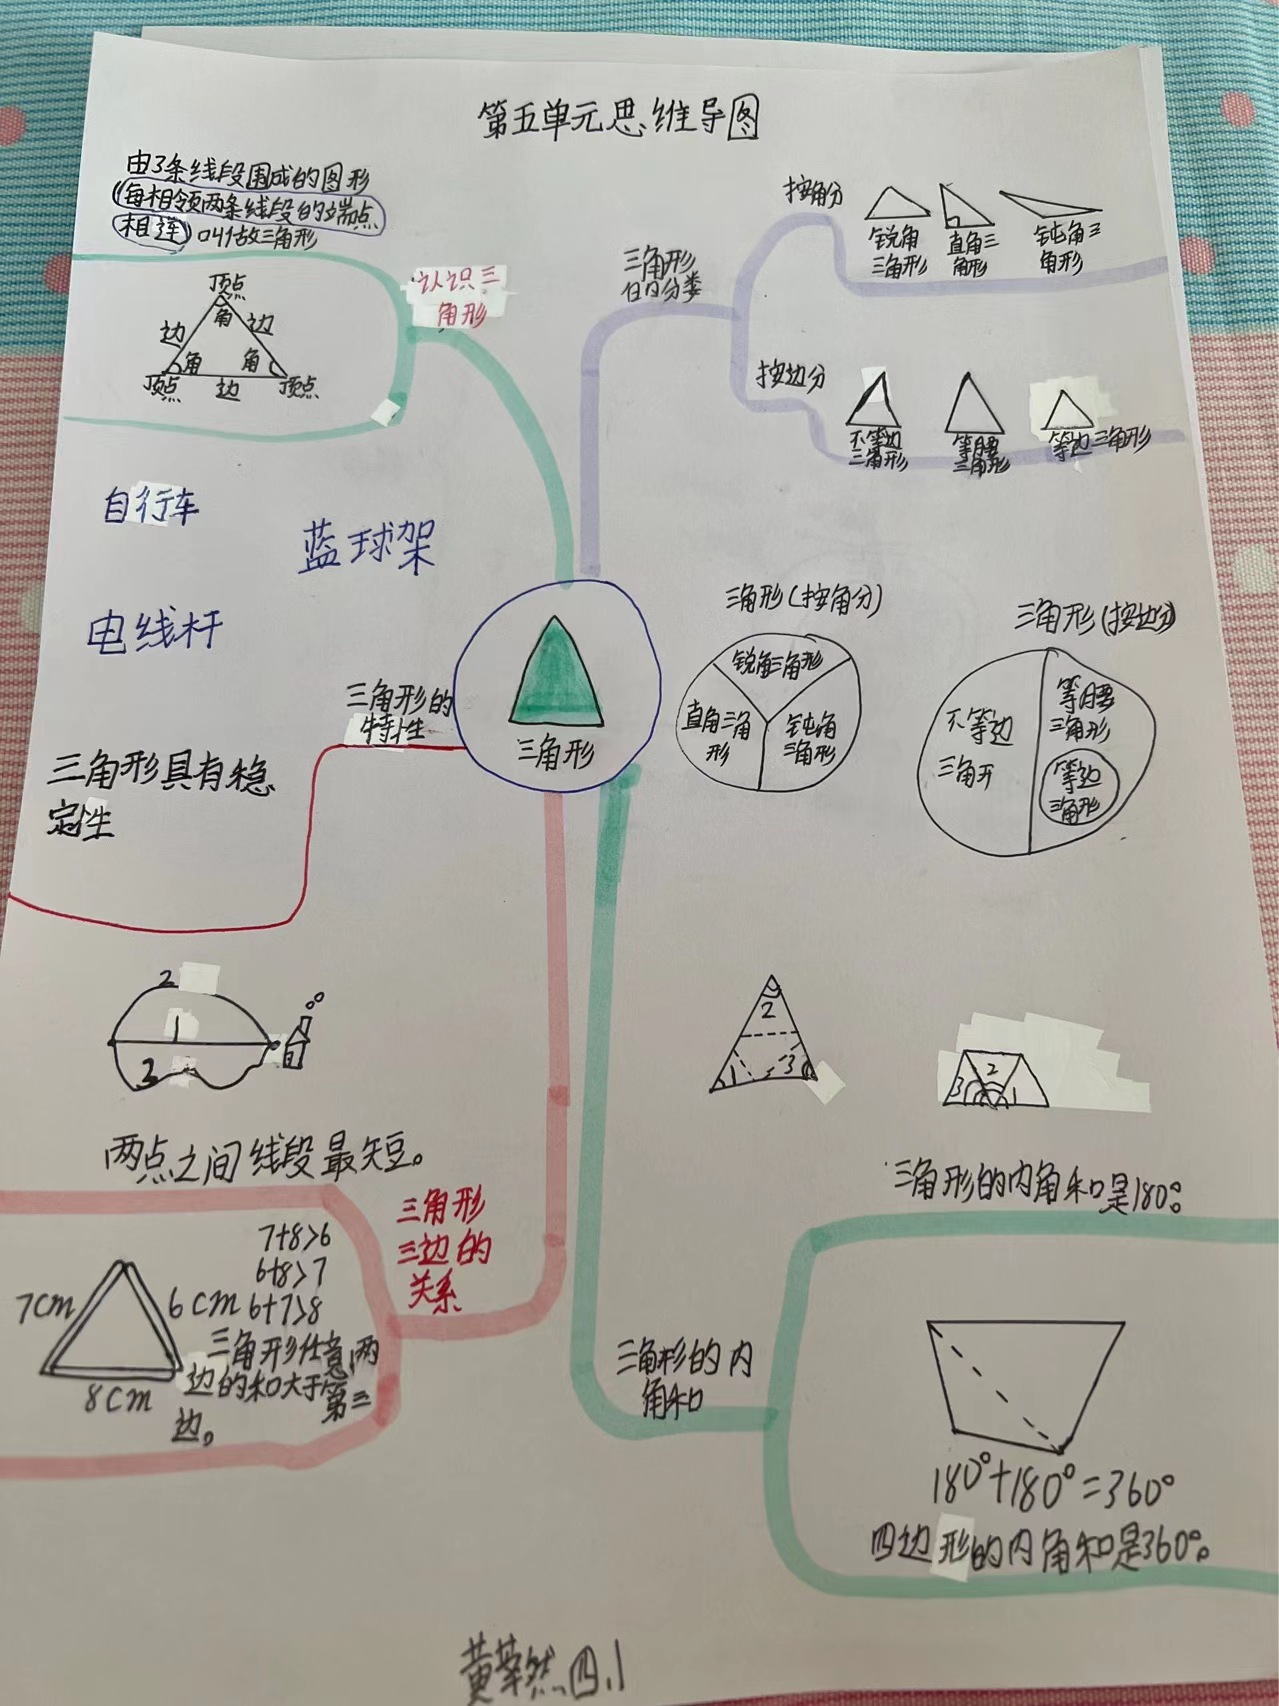 第五单元思维导图
由3条线段围成的图形
(每相领两条线段的端点
相连)叫做三角形
顶点
边 角 边
角 角
顶点 边 顶点
认识三
角形
三角形
的分类
按角分
锐角
三角形
直角三
角形
钝角三
角形
按边分
不等边
三角形
等腰
三角形
等边三角形
自行车
蓝球架
电线杆
三角形的
特性
三角形具有稳
定性
三角形
三角形(按角分)
锐角三角形
直角三角
形
钝角
三角形
三角形(按边分)
不等边
三角形
等腰
三角形
等边
三角形
2
1
3
两点之间线段最短。
三角形
三边的
关系
7+8>6
6+8>7
7cm 6cm 6+7>8
8cm
三角形任意两
边的和大于第三
边。
2
1 3
3 2 1
三角形的内角和是180°。
三角形的内
角和
180°+180°=360°
四边形的内角和是360°。
四.1